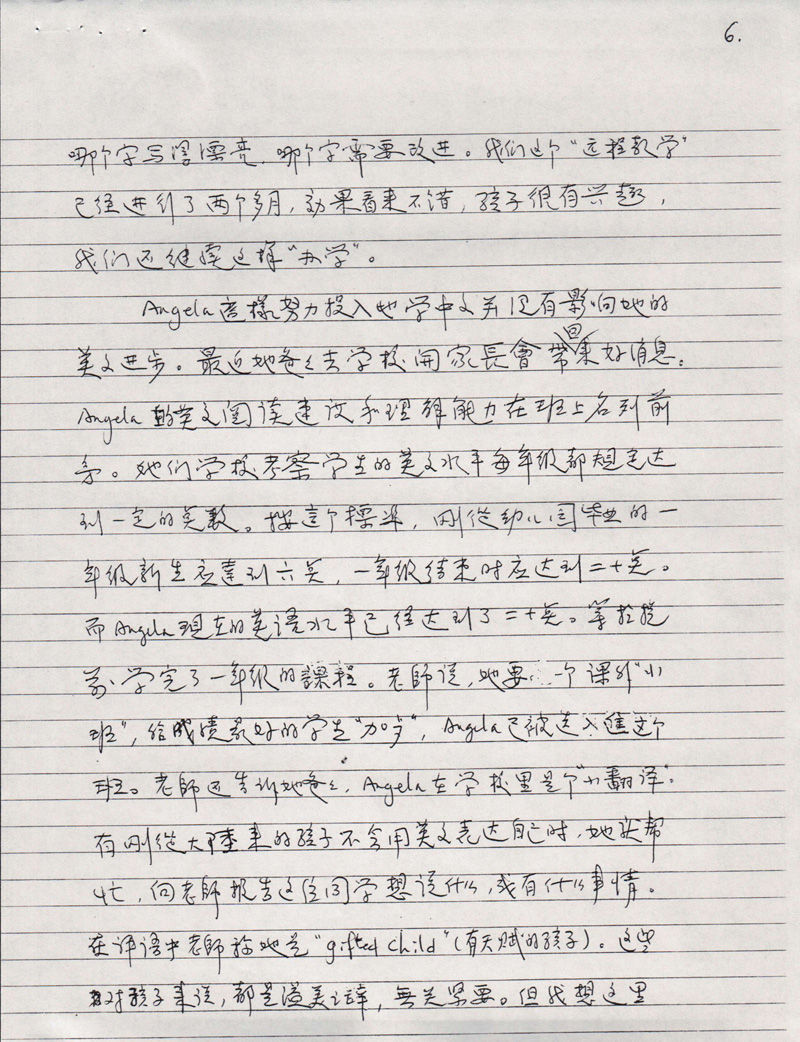 6.
哪个字写得漂亮,哪个字需要改进。我们这个“远程教学”
已经进行了两个多月,効果看来不错,孩子很有兴趣,
我们还继续这样“办学”。
Angela 这様努力投入她学中文并没有影响她的
英文进步。最近她爸々去学校開家長會带回好消息。
Angela 的英文阅读速度和理解能力在班上名列前
茅。她们学校考察学生的英文水平每年级都规定达
到一定的点数。按这个标准,刚從幼儿园毕业的一
年级新生应達到六点,一年级结束时应达到二十点。
而 Angela 现在的英语水平已经达到了二十点。等於提
前学完了一年级的課程。老師说,她要 一个课外“小
班”,给成绩最好的学生“加歺”,Angela 已被选入進这个
班。老師还告訴她爸々,Angela 在学校里是个“小翻译”。
有刚從大陸来的孩子不会用英文表达自己时,她就帮
忙,向老師报告这位同学想说什么,或有什么事情。
在评语中老師称她是“gifted child”(有天赋的孩子)。这些
对孩子来说,都是溢美之辞,無关紧要。但我想这里